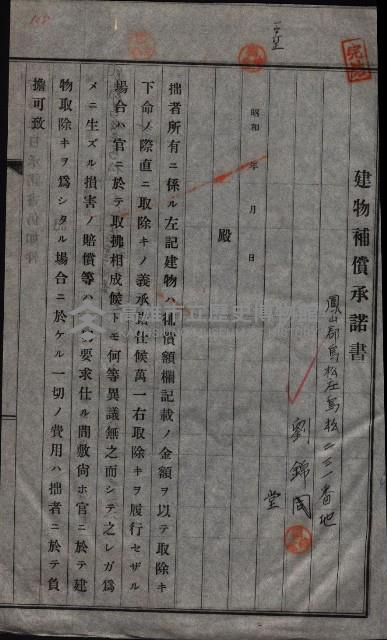 建物補償承諾書
鳳山郡鳥松庄鳥松二三一番地
劉錦同
堂
昭和 年 月 日
殿
拙者所有ニ係ル左記建物ハ補償額欄記載ノ金額ヲ以テ取除キ
下命ノ際直ニ取除キノ義承諾仕候萬一右取除キヲ履行セザル
場合ハ官ニ於テ取拂相成候トモ何等異議無之而シテ之レガ爲
メニ生ズル損害ノ賠償等ハ要求仕ル間敷尚ホ官ニ於テ建
物取除キヲ爲シタル場合ニ於ケル一切ノ費用ハ拙者ニ於テ負
擔可致
高雄市立歷史博物館